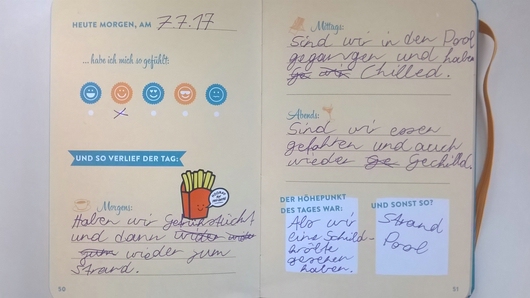 HEUTE MORGEN, AM 7.7.17
... habe ich mich so gefühlt:
UND SO VERLIEF DER TAG:
Morgens:
Haben wir Gefrühstückt
und dann wieder
wieder zum
Strand.
50
Mittags:
Sind wir in den Pool
gegangen und haben
Chilled.
Abends:
Sind wir essen
gefahren und auch
wieder Gechilld.
DER HÖHEPUNKT
DES TAGES WAR:
Als wir
eine Schild-
kröte
gesehen
haben.
UND SONST SO?
Strand
Pool
51